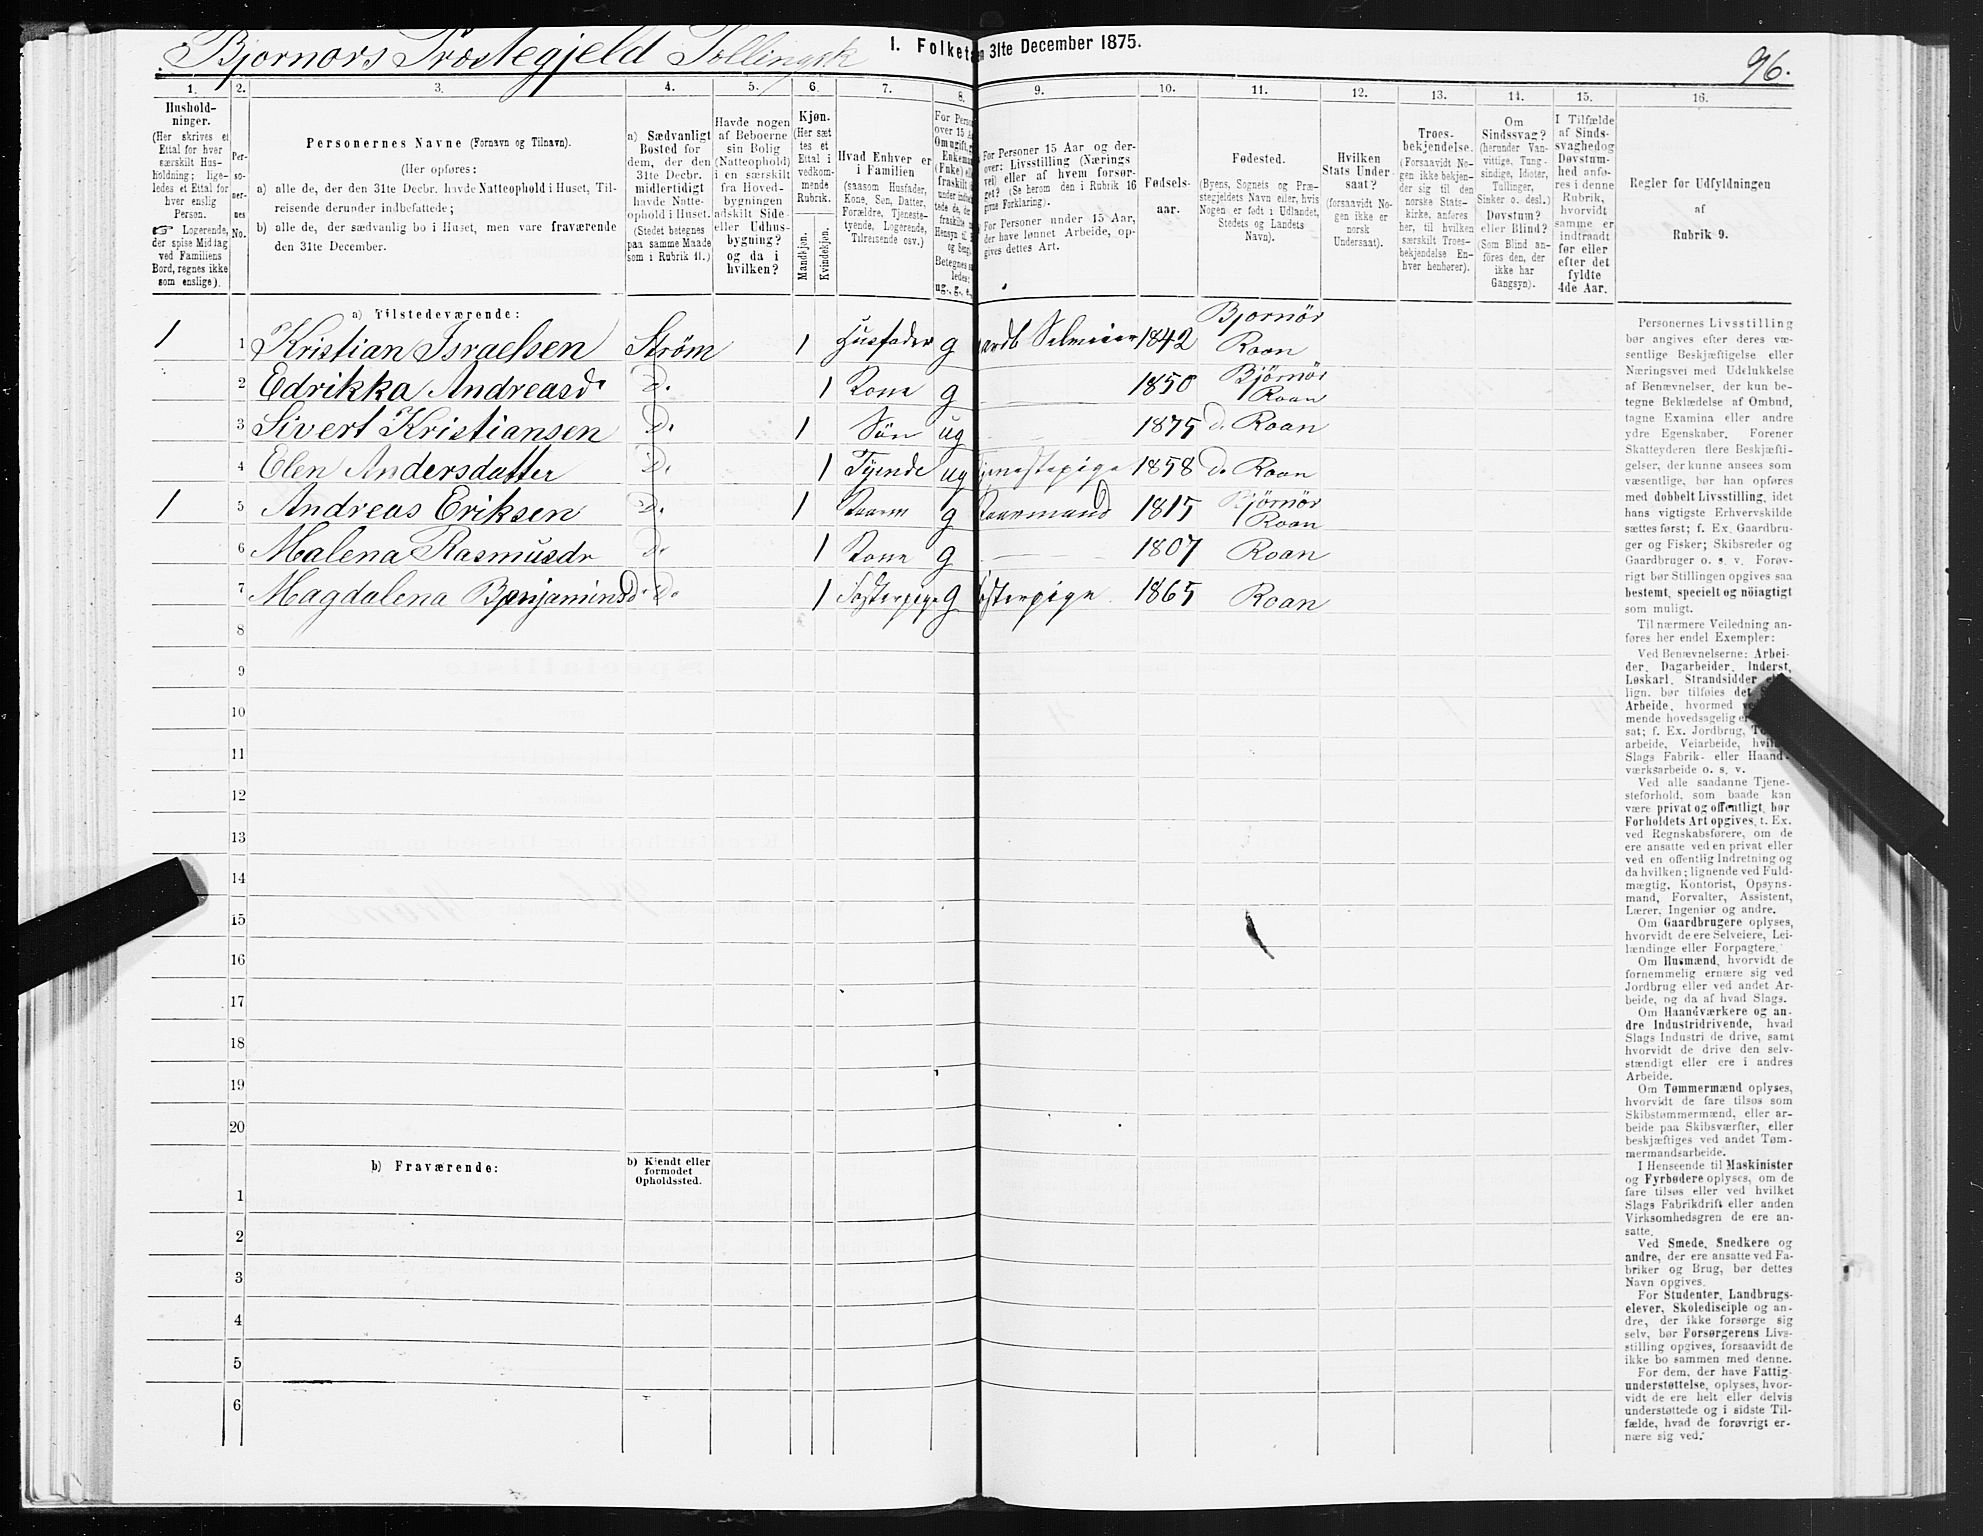 Bjørnørs Præstegjeld
I. Folket
31te December 1875.
96.
1.
2.
3.
4.
5.
6.
7.
8.
9.
10.
11.
12.
13.
14.
15.
16.
Hushold-
ninger.
(Her skrives et
Ettal for hver
særskilt Hus-
holdning; lige-
ledes et Ettal for
hver enslig
Person.
☞ Logerende,
der spise Midtag
ved Familiens
Bord, regnes ikke
som enslige).
Per-
so-
ner-
nes
No.
Personernes Navne (Fornavn og Tilnavn).
(Her opføres:
a) alle de, der den 31te Decbr. havde Natteophold i Huset, Til-
reisende derunder indbefattede;
b) alle de, der sædvanlig bo i Huset, men vare fraværende
den 31te December.
a) Sædvanligt
Bosted for
dem, der den
31te Decbr.
midlertidigt
havde Natte-
ophold i Huset.
(Stedet betegnes
paa samme Maade
som i Rubrik 11.)
Havde nogen
af Beboerne
sin Bolig
(Natteophold)
i en særskilt
fra Hoved-
bygningen
adskilt Side-
eller Udhus-
bygning?
og da i
hvilken?
Kjøn.
(Her sæt
tes et
Ettal i
vedkom-
mende
Rubrik.
Mandkjøn.
Kvindekjøn.
Hvad Enhver er
i Familien
(saasom Husfader,
Kone, Søn, Datter,
Forældre, Tjeneste-
tyende, Logerende,
Tilreisende osv.)
For Perso
over 15 A
Om ugift, g
Enkema
(Enke) el
fraskilt
ledes:
ug., g., e.,
For Personer 15 Aar og der-
over: Livsstilling (Nærings
vei) eller af hvem forsør-
get? (Se herom den i Rubrik 16
givne Forklaring).
For Personer under 15 Aar,
der have lønnet Arbeide, op-
gives dettes Art.
Fødsels-
aar.
Fødested.
(Byens, Sognets og Præ-
stegjeldets Navn eller, hvis
Nogen er født i Udlandet,
Stedets og Landets
Navn).
Hvilken
Stats Under-
saat?
(forsaavidt No-
gen ikke er
norsk
Undersaat).
Troes-
bekjendelse.
(Forsaavidt No-
gen ikke bekjen-
der sig til den
norske Stats-
kirke, anføres
her, til hvilken
særskilt Troes-
bekjendelse En-
hver henhører).
Om
Sindssvag?
(herunder Van-
vittige, Tung-
sindige, Idioter,
Tullinger,
Sinker o. desl.)
Døvstum?
eller Blind?
(Som Blind an-
føres den, der
ikke har
Gangsyn).
I Tilfælde
af Sinds-
svaghed og
Døvstum-
hed anfø-
res i denne
Rubrik,
hvorvidt
samme er
indtraadt
før eller
efter det
fyldte
4de Aar.
Regler for Udfyldningen
af
Rubrik 9.
a) Tilstedeværende:
1 1 Kristian Israelsen Strøm 1 Husfader g Selveier 1842 Bjørnør Roan
2 Edrikka Andreasd. D. 1 Kone g 1850 Bjørnør Roan
3 Sivert Kristiansen D. 1 Søn ug 1875 d. Roan
4 Elen Andersdatter D. 1 Tyende ug Tjenestepige 1858 do Roan
1 5 Andreas Eriksen D. 1 g 1815 Bjørnør Roan
6 Malena Rasmusdr D. 1 Kone g 1807 Roan
7 Magdalena Benjaminsd. D. 1 Fosterpige g Fosterpige. 1865 Roan
8
9
10
11
12
13
14
15
16
17
18
19
20
b) Fraværende:
b) Kjendt eller
formodet
Opholdssted.
1
2
3
4
5
6
Personernes Livsstilling
bør angives efter deres væ-
sentlige Beskjæftigelse eller
Næringsvei med Udelukkelse
af Benævnelser, der kun be-
tegne Beklædelse af Ombud,
tagne Examina eller andre
ydre Egenskaber. Forener
Skatteyderen flere Beskjæfti-
gelser, der kunne ansees som
væsentlige, bør han opføres
med dobbelt Livsstilling, idet
hans vigtigste Erhvervskilde
sættes først; f. Ex. Gaardbru-
ger og Fisker; Skibsreder og
Gaardbruger o. s. v. Forøv-
rigt bør Stillingen opgives saa
bestemt, specielt og nöiagtigt
som muligt.
Til nærmere Veiledning an-
føres her endel Exempler:
Ved Benævnelserne: Arbei-
der, Dagarbeider, Inderst,
Løskarl, Strandsidder
lign. bør tilføies det
Arbeide, hvormed
mende hovedsagelig er
sat; f. Ex. Jordbrug,
arbeide, Veiarbeide,
Slags Fabrik- eller Haand-
værksarbeide o. s. v.
Ved alle saadanne Tjene-
steforhold, som baade kan
være privat og offentligt, bør
Forholdets Art opgives, t. Ex.
ved Regnskabsførere, om de
ere ansatte ved en privat eller
ved en offentlig Indretning og
da hvilken; lignende ved Fuld-
mægtig, Kontorist, Opsyns-
mand, Forvalter, Assistent,
Lærer, Ingeniør og andre.
Om Gaardbrugere oplyses,
hvorvidt de ere Selveiere, Lei-
lændinge eller Forpagtere.
Om Husmænd, hvorvidt de
fornemmelig ernære sig ved
Jordbrug eller ved andet Ar-
beide, og da af hvad Slags.
Om Haandværkere og an-
dre Industridrivende, hvad
Slags Industri de drive, samt
hvorvidt de drive den selv-
stændigt eller ere i andres
Arbeide.
Om Tømmermænd oplyses,
hvorvidt de fare tilsøs som
Skibstømmermænd, eller ar-
beide paa Skibsværfter, eller
beskjæftiges ved andet Tøm-
mermandsarbeide.
I Henseende til Maskinister
og Fyrbødere oplyses, om de
fare tilsøs eller ved hvilket
Slags Fabrikdrift eller anden
Virksomhedsgren de ere an-
satte.
Ved Smede, Snedkere og
andre, der ere ansatte ved Fa-
briker og Brug, bør dettes
Navn opgives.
For Studenter, Landbrugs-
elever, Skoledisciple og an-
dre, der ikke forsørge sig
selv, bør Forsørgerens Livs-
stilling opgives, forsaavidt de
ikke bo sammen med denne.
For dem, der have Fattig-
understøttelse, oplyses, hvor-
vidt de ere helt eller delvis
understøttede og i sidste Til-
fælde, hvad de forøvrigt er-
nære sig ved.